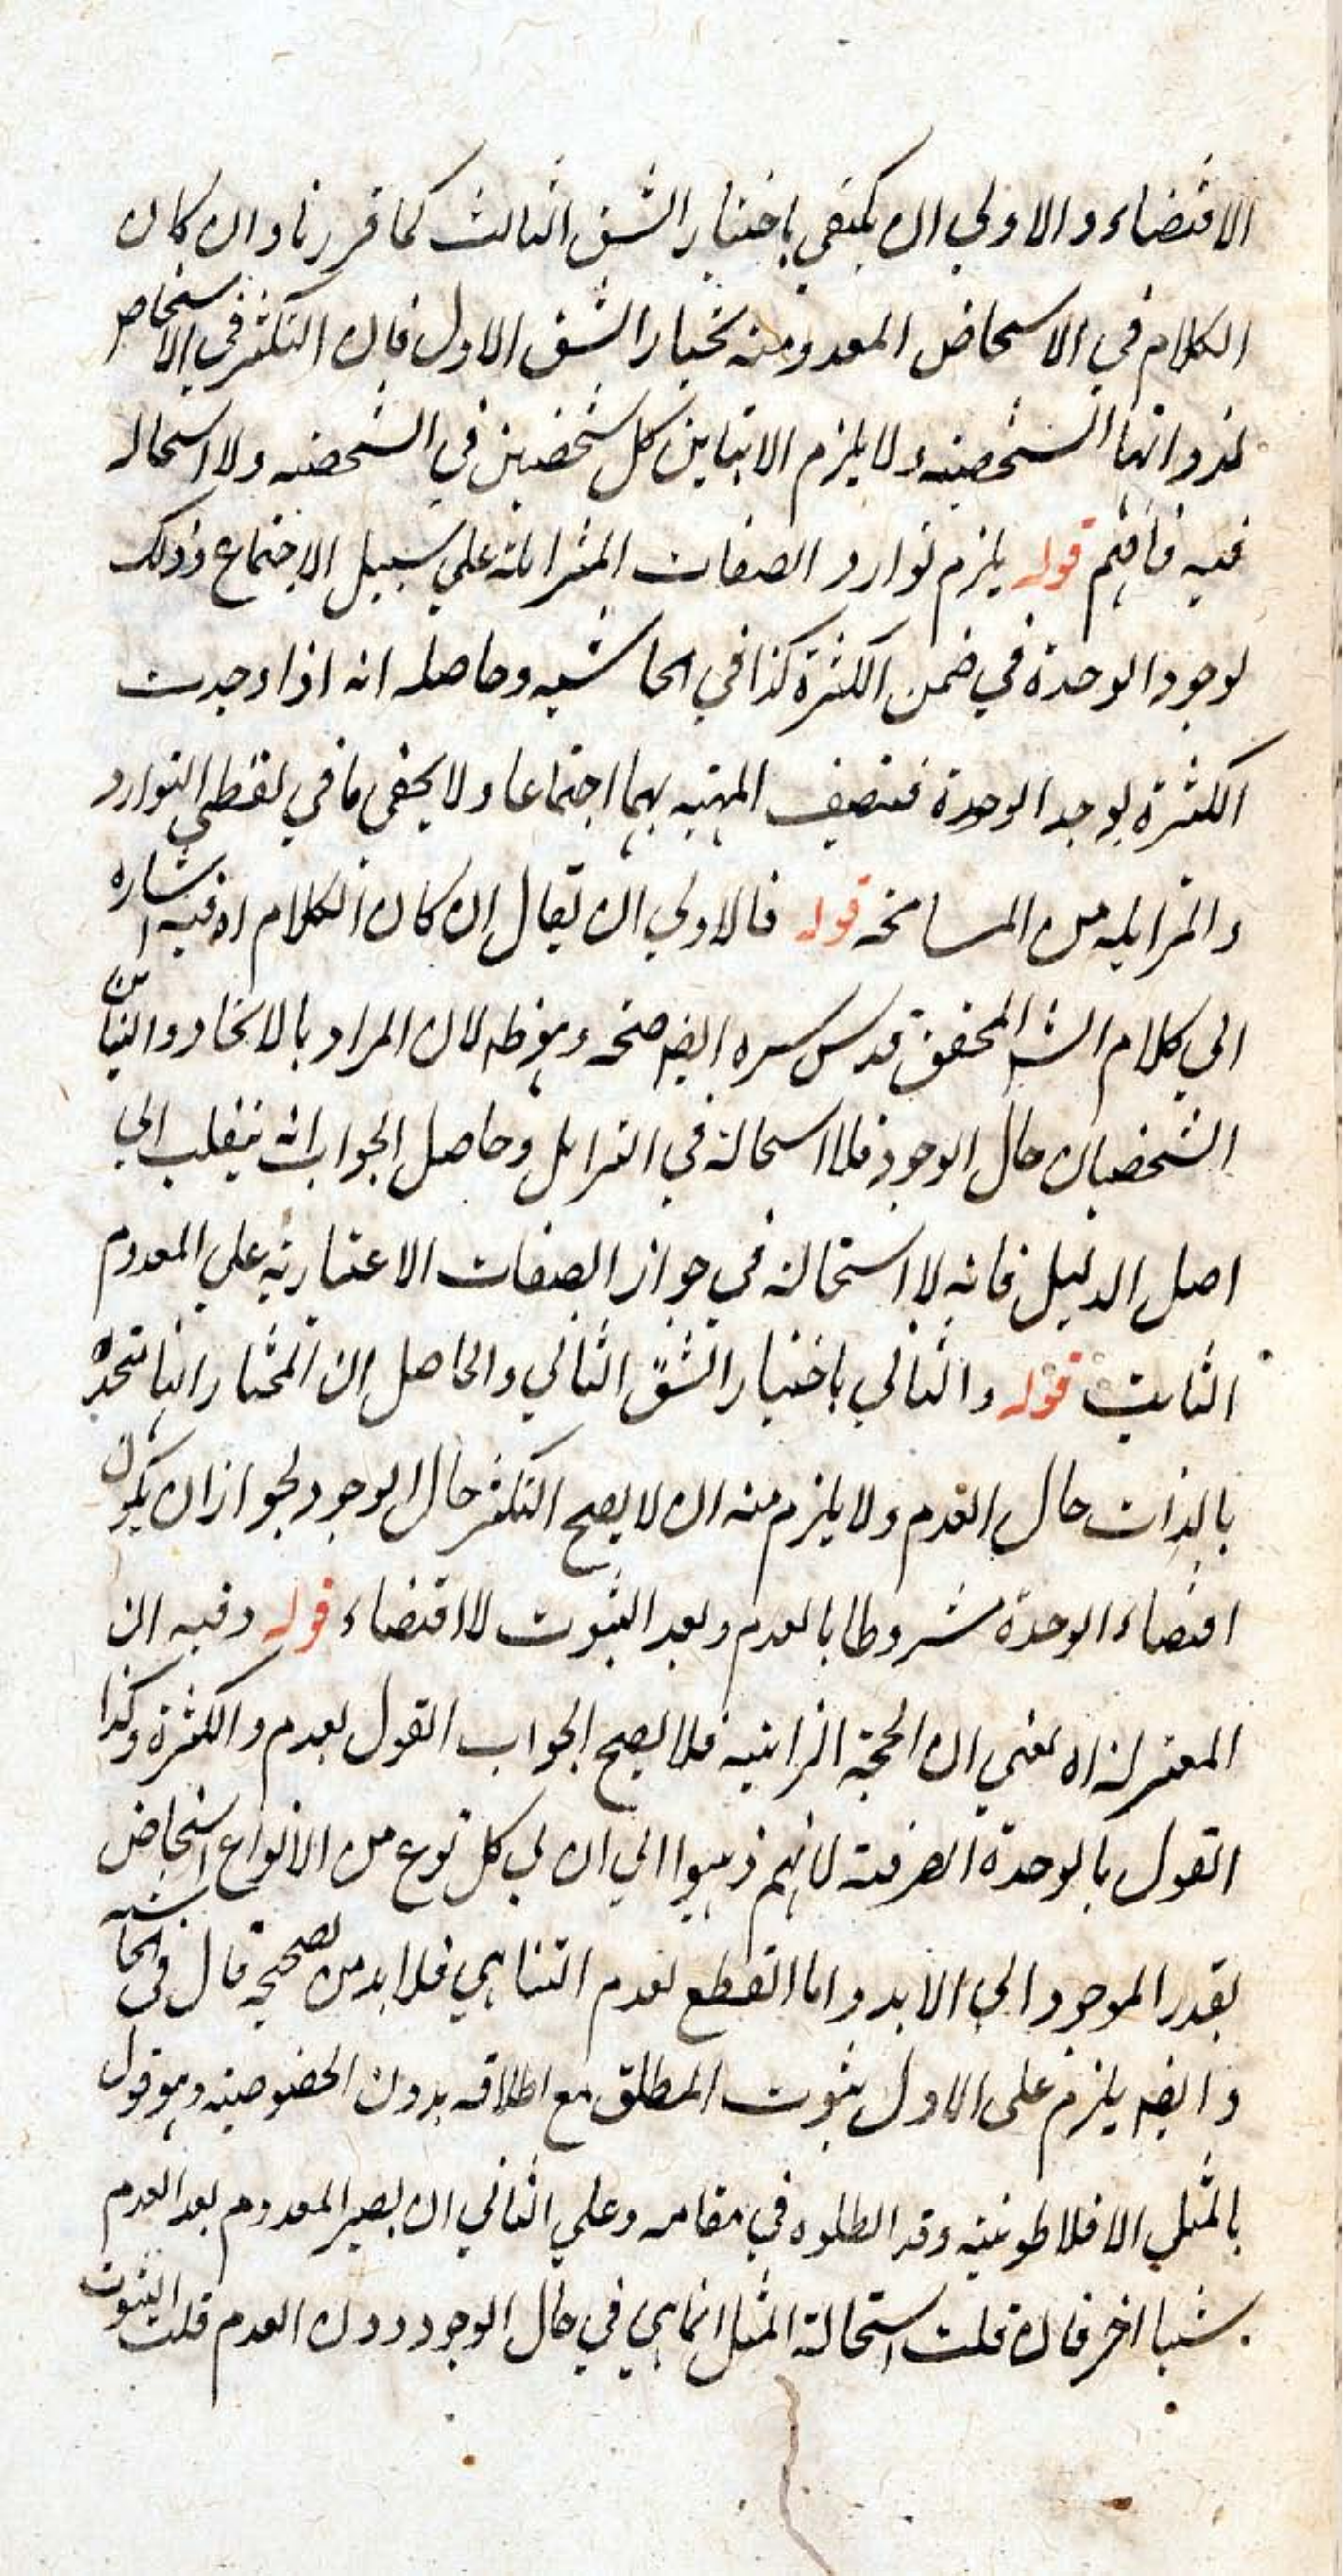 الاقتضاء والاولي ان يكتفي باختيار الشق الثالث كما قررنا وان كان
الكلام في الاشخاص المعدومة نختار الشق الاول فان التكثر في الاشخاص
لذواتها الشخصية ولا يلزم الا تباين كل شخصين في الشخصية ولا استحالة
فيه فافهم قوله يلزم توارد الصفات المتزايلة علي سبيل الاجتماع وذلك
لوجود الوحدة في ضمن الكثرة كذا في الحاشيه وحاصله انه اذا وجدت
الكثرة يوجد الوحدة فتتصف المهية بهما اجتماعا ولا يخفى ما في لفظي التوارد
والتزايله من المسامحه قوله فالاولي ان يقال ان كان الكلام اه فيه اشاره
الي كلام الش المحقق قدس سره ايضه صحه وهو ظه لان المراد بالاتحاد والتباين
الشخصيان حال الوجود فلا استحالة في التزايل وحاصل الجواب انه ينقلب الي
اصل الدليل فانه لا استحالة في جواز الصفات الاعتبارية علي المعدوم
الثابت قوله والثاني باختيار الشق الثاني والحاصل ان المختار انها متحدة
بالذات حال العدم ولا يلزم منه ان لا يصح التكثر حال الوجود لجواز ان يكون
اقتضاء الوحدة مشروطا بالعدم وبعد الثبوت لا اقتضاء قوله وفيه ان
المعتزلة اه يعني ان الحجة الزامية فلا يصح الجواب القول بعدم والكثرة وكذا
القول بالوحدة الصرفة لانهم ذهبوا الي ان لي كل نوع من الانواع اشخاص
بقدر الموجود الي الابد واما القطع لعدم التناهي فلا بد من تصحيحه قال في الحاشيه
وايضه يلزم على الاول ثبوت المطلق مع اطلاقه بدون الخصوصية وهو قول
بالمثل الافلاطونية وقد ابطلوه في مقامه وعلي الثاني ان يصير المعدوم بعد العدم
شيئا اخر فان قلت استحالة المثل انما هي في حال الوجود دون العدم قلت الثبوت